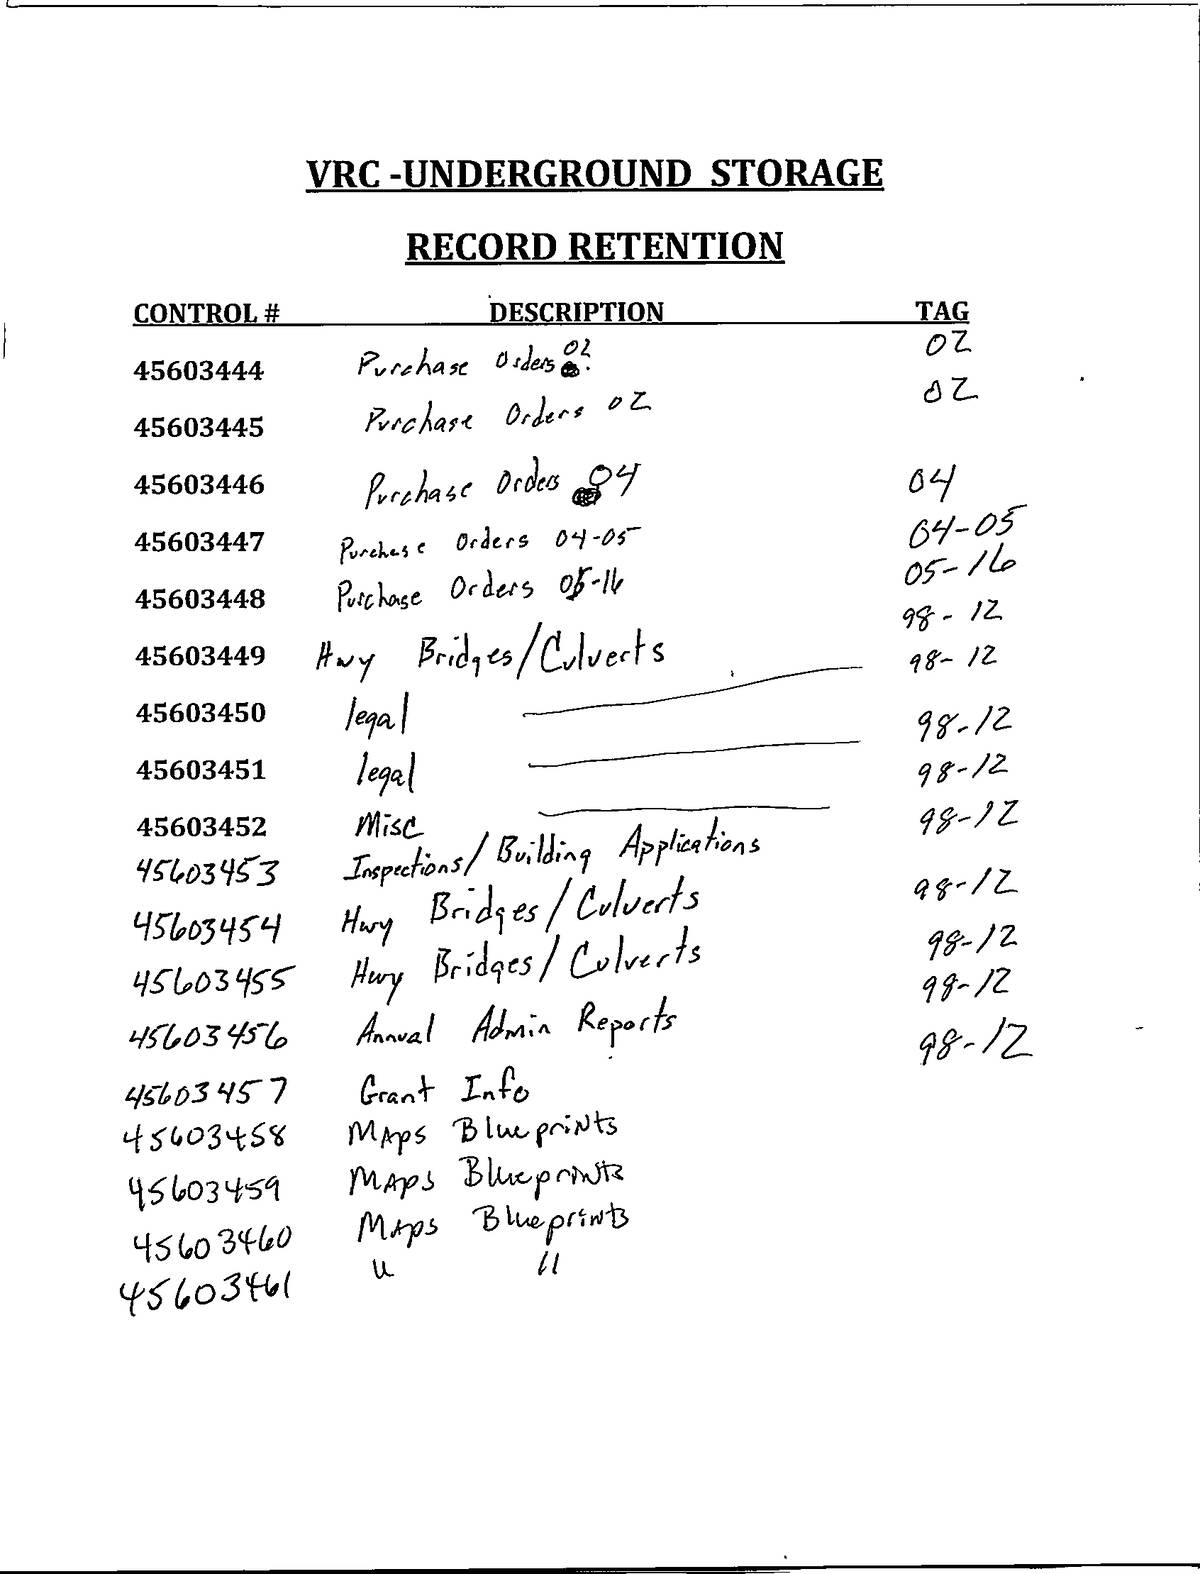 VRC -UNDERGROUND STORAGE
RECORD RETENTION
CONTROL # DESCRIPTION TAG
45603444 Purchase Orders 02 02
45603445 Purchase Orders 02 02
45603446 Purchase Orders 04 04
45603447 Purchase Orders 04-05 04-05
45603448 Purchase Orders 05-16 05-16
98-12
45603449 Hwy Bridges/Culverts 98-12
45603450 legal 98-12
45603451 legal 98-12
45603452 Misc 98-12
45603453 Inspections/Building Applications 98-12
45603454 Hwy Bridges/Culverts 98-12
45603455 Hwy Bridges/Culverts 98-12
45603456 Annual Admin Reports 98-12
45603457 Grant Info
45603458 Maps Blueprints
45603459 Maps Blueprints
45603460 Maps Blueprints
45603461 " "